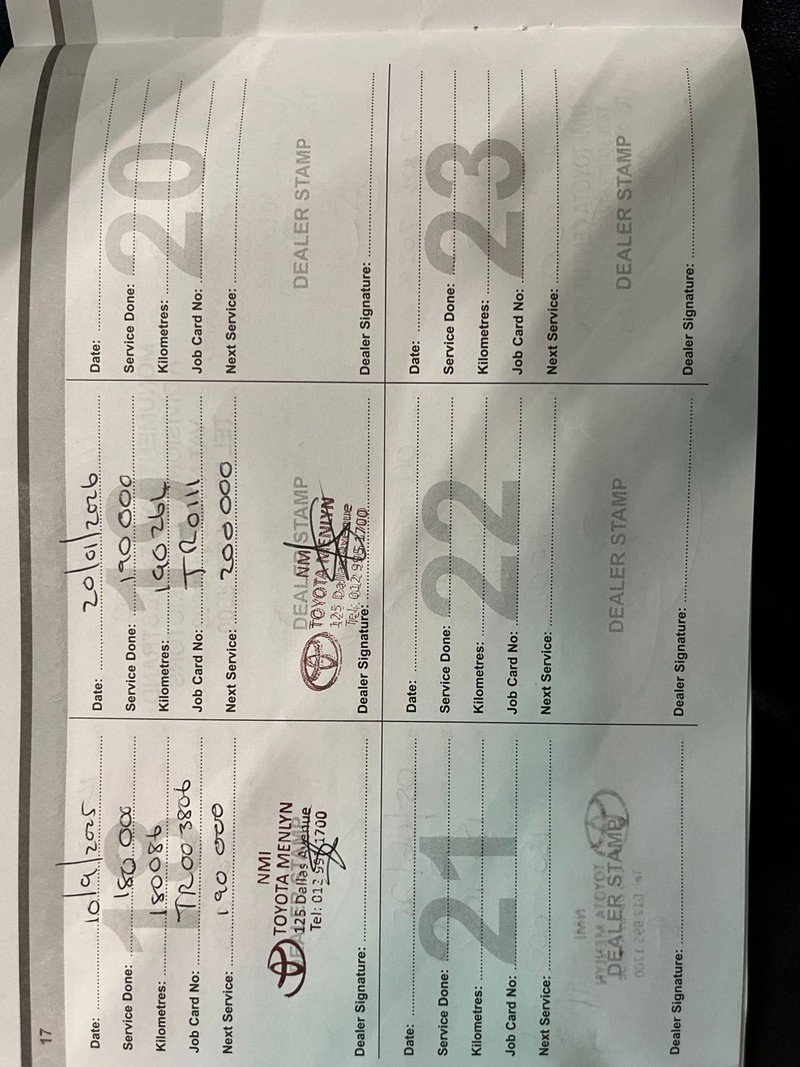 17
18
Date: 10/9/2025
Service Done: 180 000
Kilometres: 180086
Job Card No: TR003806
Next Service: 190 000
DEALER STAMP
NMI
TOYOTA MENLYN
125 Dallas Avenue
Tel: 012 995 1700
Dealer Signature:
19
Date: 20/01/2026
Service Done: 190 000
Kilometres: 190264
Job Card No: TR0111
Next Service: 200 000
DEALER STAMP
NMI
TOYOTA MENLYN
125 Dallas Avenue
Tel: 012 995 1700
Dealer Signature:
20
Date:
Service Done:
Kilometres:
Job Card No:
Next Service:
DEALER STAMP
Dealer Signature:
21
Date:
Service Done:
Kilometres:
Job Card No:
Next Service:
DEALER STAMP
Dealer Signature:
22
Date:
Service Done:
Kilometres:
Job Card No:
Next Service:
DEALER STAMP
Dealer Signature:
23
Date:
Service Done:
Kilometres:
Job Card No:
Next Service:
DEALER STAMP
Dealer Signature: